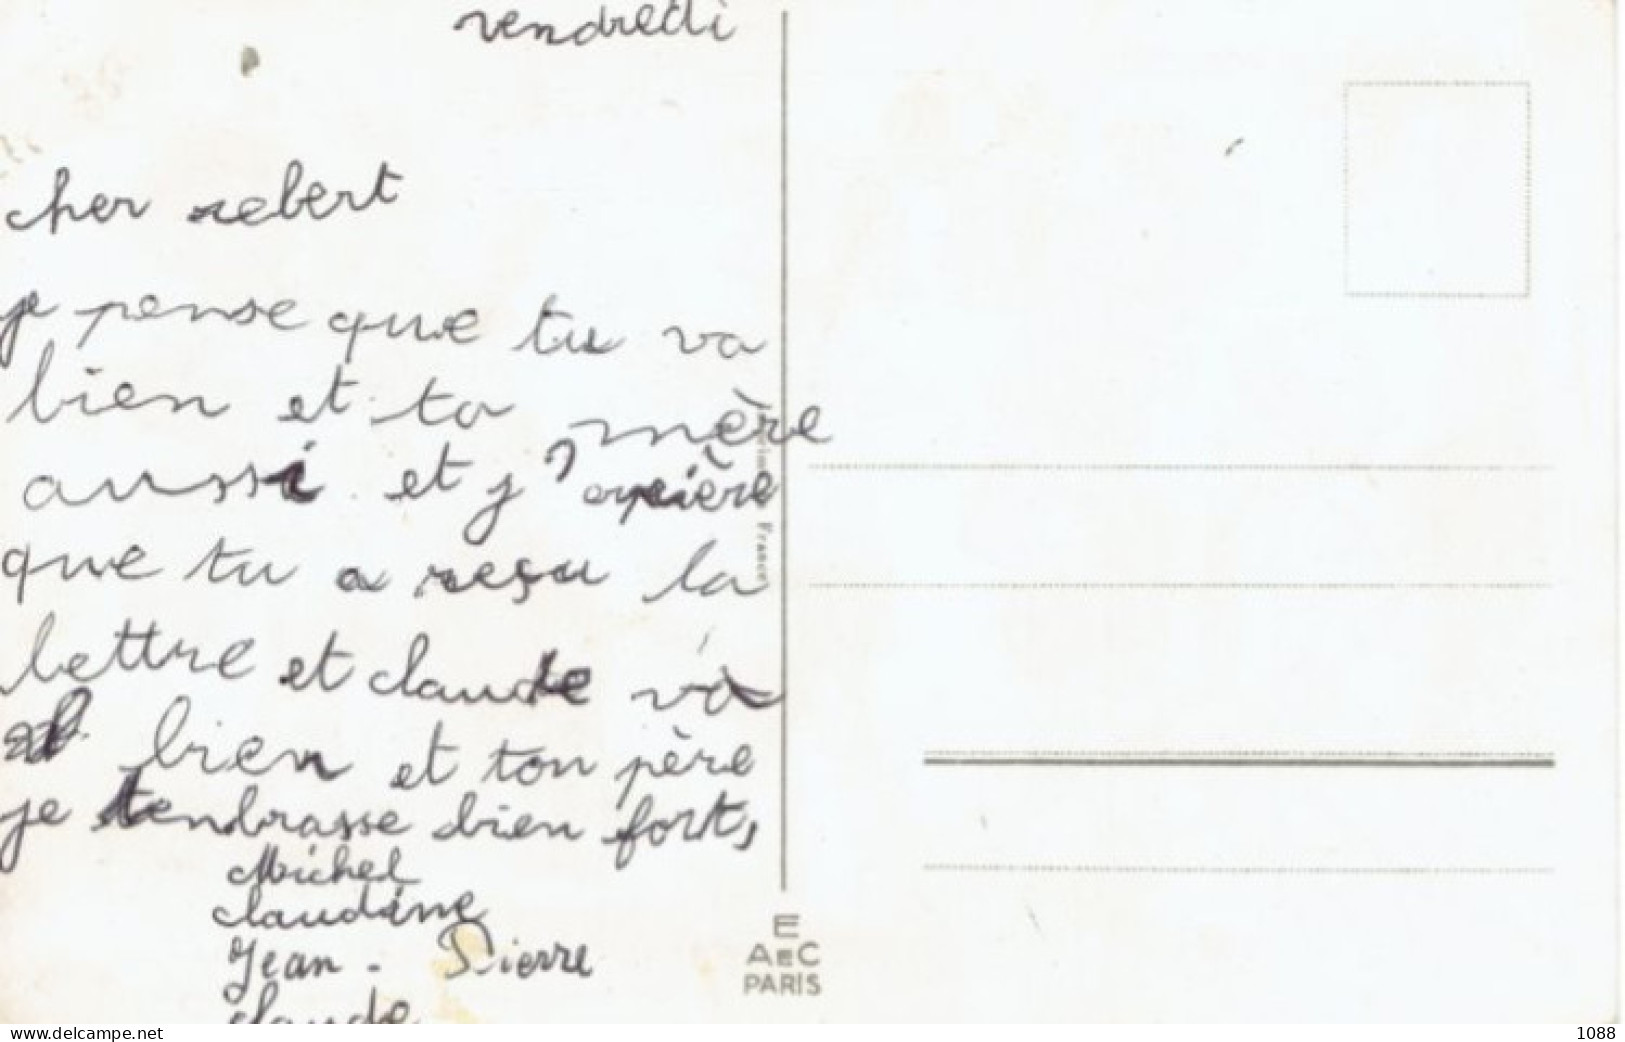 vendredi
cher rebert
je pense que tu va
bien et ta mère
aussi et j'
que tu a reçu la
lettre et claude va
bien et ton père
je tendbrasse bien fort,
Michel
claudine
Jean-Pierre
claude
France
E
AEC
PARIS
www.delcampe.net
1088